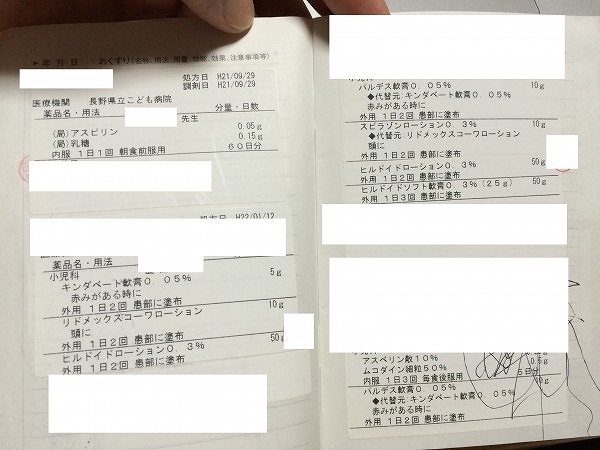 ▶年月日 おくすり(名称、用法、用量、効能、効果、注意事項等)
処方日 H21/09/29
調剤日 H21/09/29
医療機関 長野県立こども病院
薬品名・用法 分量・日数
先生
(局)アスピリン 0.05g
(局)乳糖 0.15g
内服 1日1回 朝食前服用 60日分
処方日 H22/01/12
薬品名・用法
小児科
キンダベート軟膏0.05% 5g
赤みがある時に
外用 1日2回 患部に塗布
リドメックスコーワローション 10g
頭に
外用 1日2回 患部に塗布
ヒルドイドローション0.3% 50g
外用 1日2回 患部に塗布
小児科
パルデス軟膏0.05% 10g
◆代替元:キンダベート軟膏0.05%
赤みがある時に
外用 1日2回 患部に塗布
スピラゾンローション0.3% 10g
◆代替元:リドメックスコーワローション
頭に
外用 1日2回 患部に塗布
ヒルドイドローション0.3% 50g
外用 1日2回 患部に塗布
ヒルドイドソフト軟膏0.3%(25g) 50g
外用 1日3回 患部に塗布
アスベリン散10%
ムコダイン細粒50% 0.5g
内服 1日3回 毎食後服用 5日分
パルデス軟膏0.05% 10g
◆代替元:キンダベート軟膏0.05%
赤みがある時に
外用 1日2回 患部に塗布